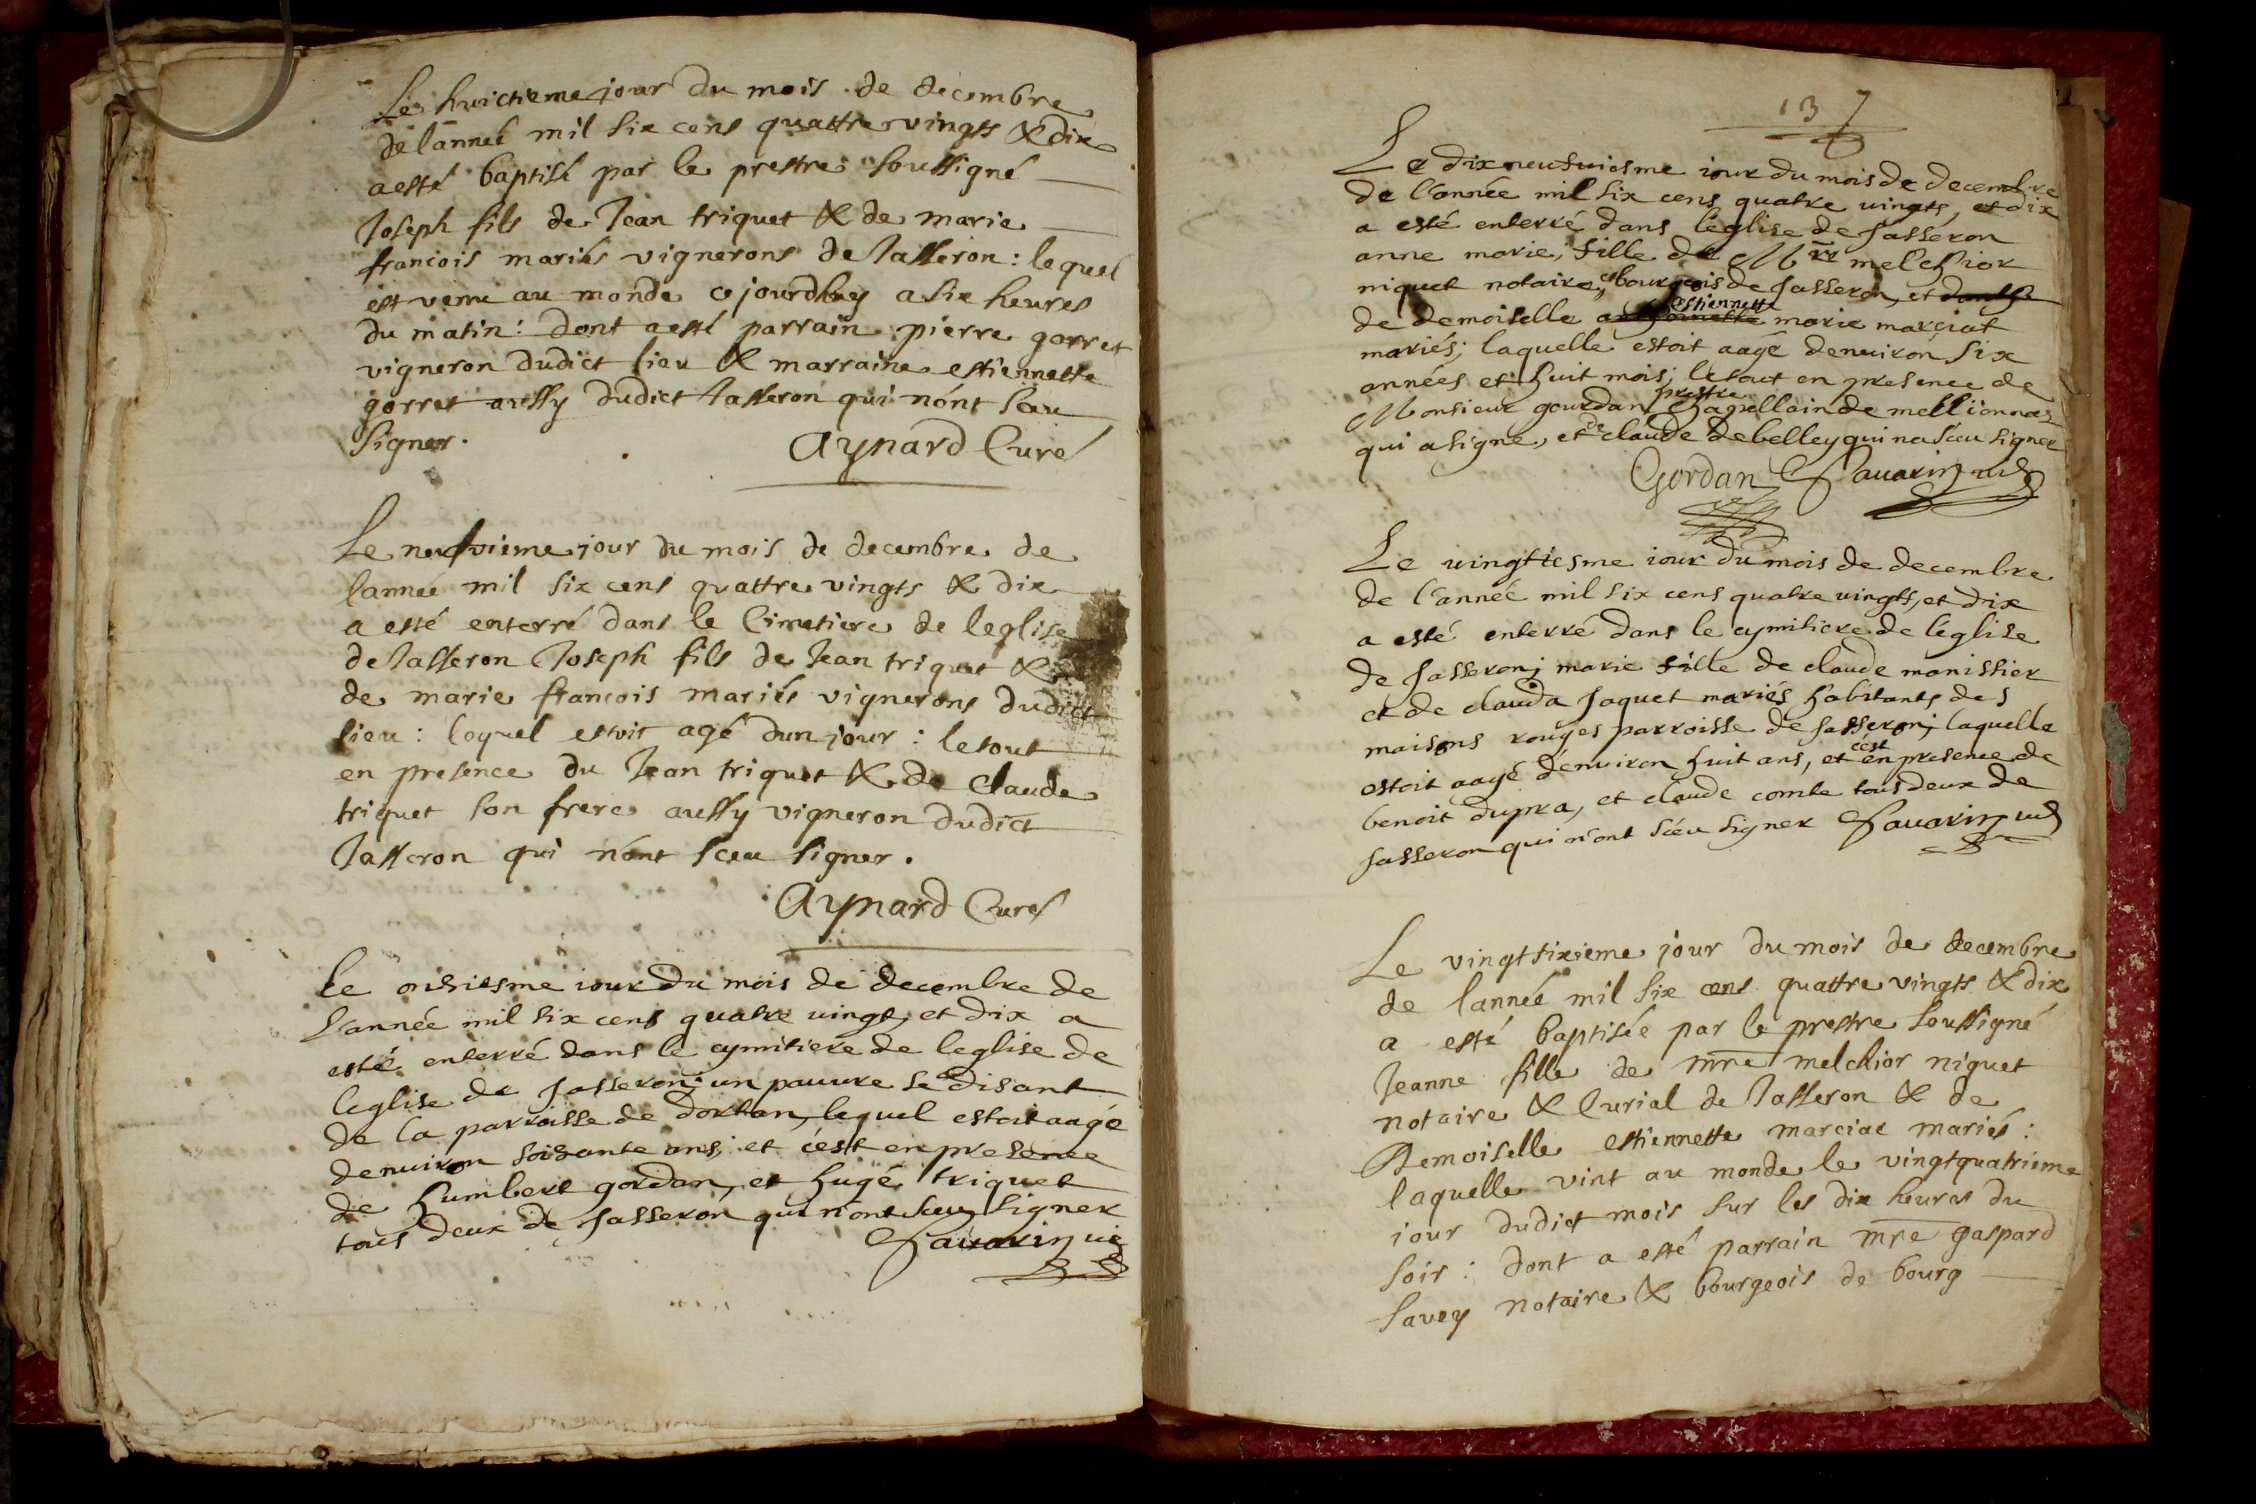 Le huictieme jour du mois de decembre
de lannée mil six cens quattre vingts & dix
a esté baptisé par le prestre soussigné
Joseph fils de Jean triquet & de marie
francois mariés vignerons de Jasseron : lequel
est venu au monde ce jourdhuy a six heures
du matin : dont a esté parrain pierre gorret
vigneron dudict lieu & marraine estiennette
gorret aussy dudict Jasseron qui nónt sceu
signer.
Aynard Curé
Le neufvieme jour du mois de decembre de
lannée mil six cens quattre vingts & dix
a esté enterré dans le Cimetiere de leglise
de Jasseron Joseph fils de Jean triquet &
de marie francois mariés vignerons dudict
lieu : lequel estoit agé dun jour : le tout
en presence du Jean triquet & de Claude
triquet son frere aussy vigneron dudict
Jasseron qui nónt sceu signer.
Aynard Curé
Le onziesme iour du mois de decembre de
l'année mil six cens quatre vingt, et dix a
esté enterré dans le cymitiere de leglise de
leglise de Jasseron; un pauvre se disant
de la parroisse de dortan, lequel estoit aagé
denuiron soixante ans; et c'est en presence
de humbert gordan, et hugé triquet
tous deux de Jasseron qui n'ont sceu signer
Sauarin vic
137
Le dixneufuiesme iour du mois de decembre
de l'année mil six cens quatre vingts, et dix
a esté enterré dans l'eglise de Jasseron
anne marie, fille de Mre melchior
niquet notaire, et bourgeois de Jasseron, et
estiennette
de demoiselle marie marciat
mariés; laquelle estoit aagé denuiron six
années et huit mois; le tout en presence de
prestre
Monsieur gourdan chapellain de mellionnas
qui a signé, et de claude debelley qui na sceu signer
Gordan Sauarin vic
Le uingtiesme iour du mois de decembre
de l'année mil six cens quatre vingts, et dix
a esté enterré dans le cymitiere de l'eglise
de Jasseron; marie fille de claude monissier
et de clauda Jaquet mariés habitants des
maisons rouges parroisse de Jasseron; laquelle
estoit aagé denuiron huit ans, et cest en presence de
benoit dupra, et claude combe tous deux de
Jasseron qui n'ont sceu signer Sauarin vic
Le vingtsixieme jour du mois de decembre
de lannée mil six cens quattre vingts & dix
a esté baptisée par le prestre soussigné
Jeanne fille de mre melchior niquet
notaire & Curial de Jasseron & de
Demoiselle estiennette marciat mariés :
laquelle vint au monde le vingtquatrieme
iour dudict mois sur les dix heures du
soir : dont a esté parrain mre gaspard
Savey notaire & bourgeois de bourg